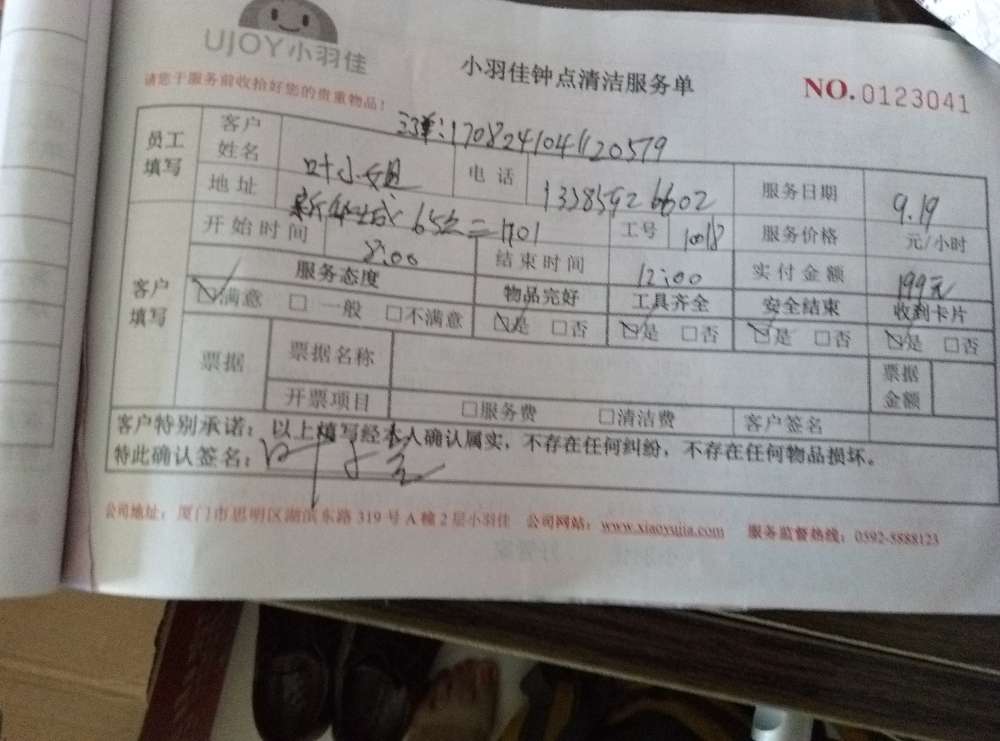 UJOY小羽佳
小羽佳钟点清洁服务单
NO.0123041
请您于服务前收拾好您的贵重物品!
订单:1708241041120579
员工填写 客户姓名 叶小姐 电话 服务日期 9.19
地址 新华城 1701 工号 10018 服务价格 元/小时
客户填写 开始时间 8:00 结束时间 12:00 实付金额 199元
服务态度 物品完好 工具齐全 安全结束 收到卡片
☑满意 □一般 □不满意 ☑是 □否 ☑是 □否 ☑是 □否 ☑是 □否
票据 票据名称 票据金额
开票项目 □服务费 □清洁费 客户签名
客户特别承诺:以上填写经本人确认属实,不存在任何纠纷,不存在任何物品损坏。
特此确认签名:
公司地址:厦门市思明区湖滨东路319号A幢2层小羽佳 公司网站:www.xiaoyujia.com 服务监督热线:0592-5888123